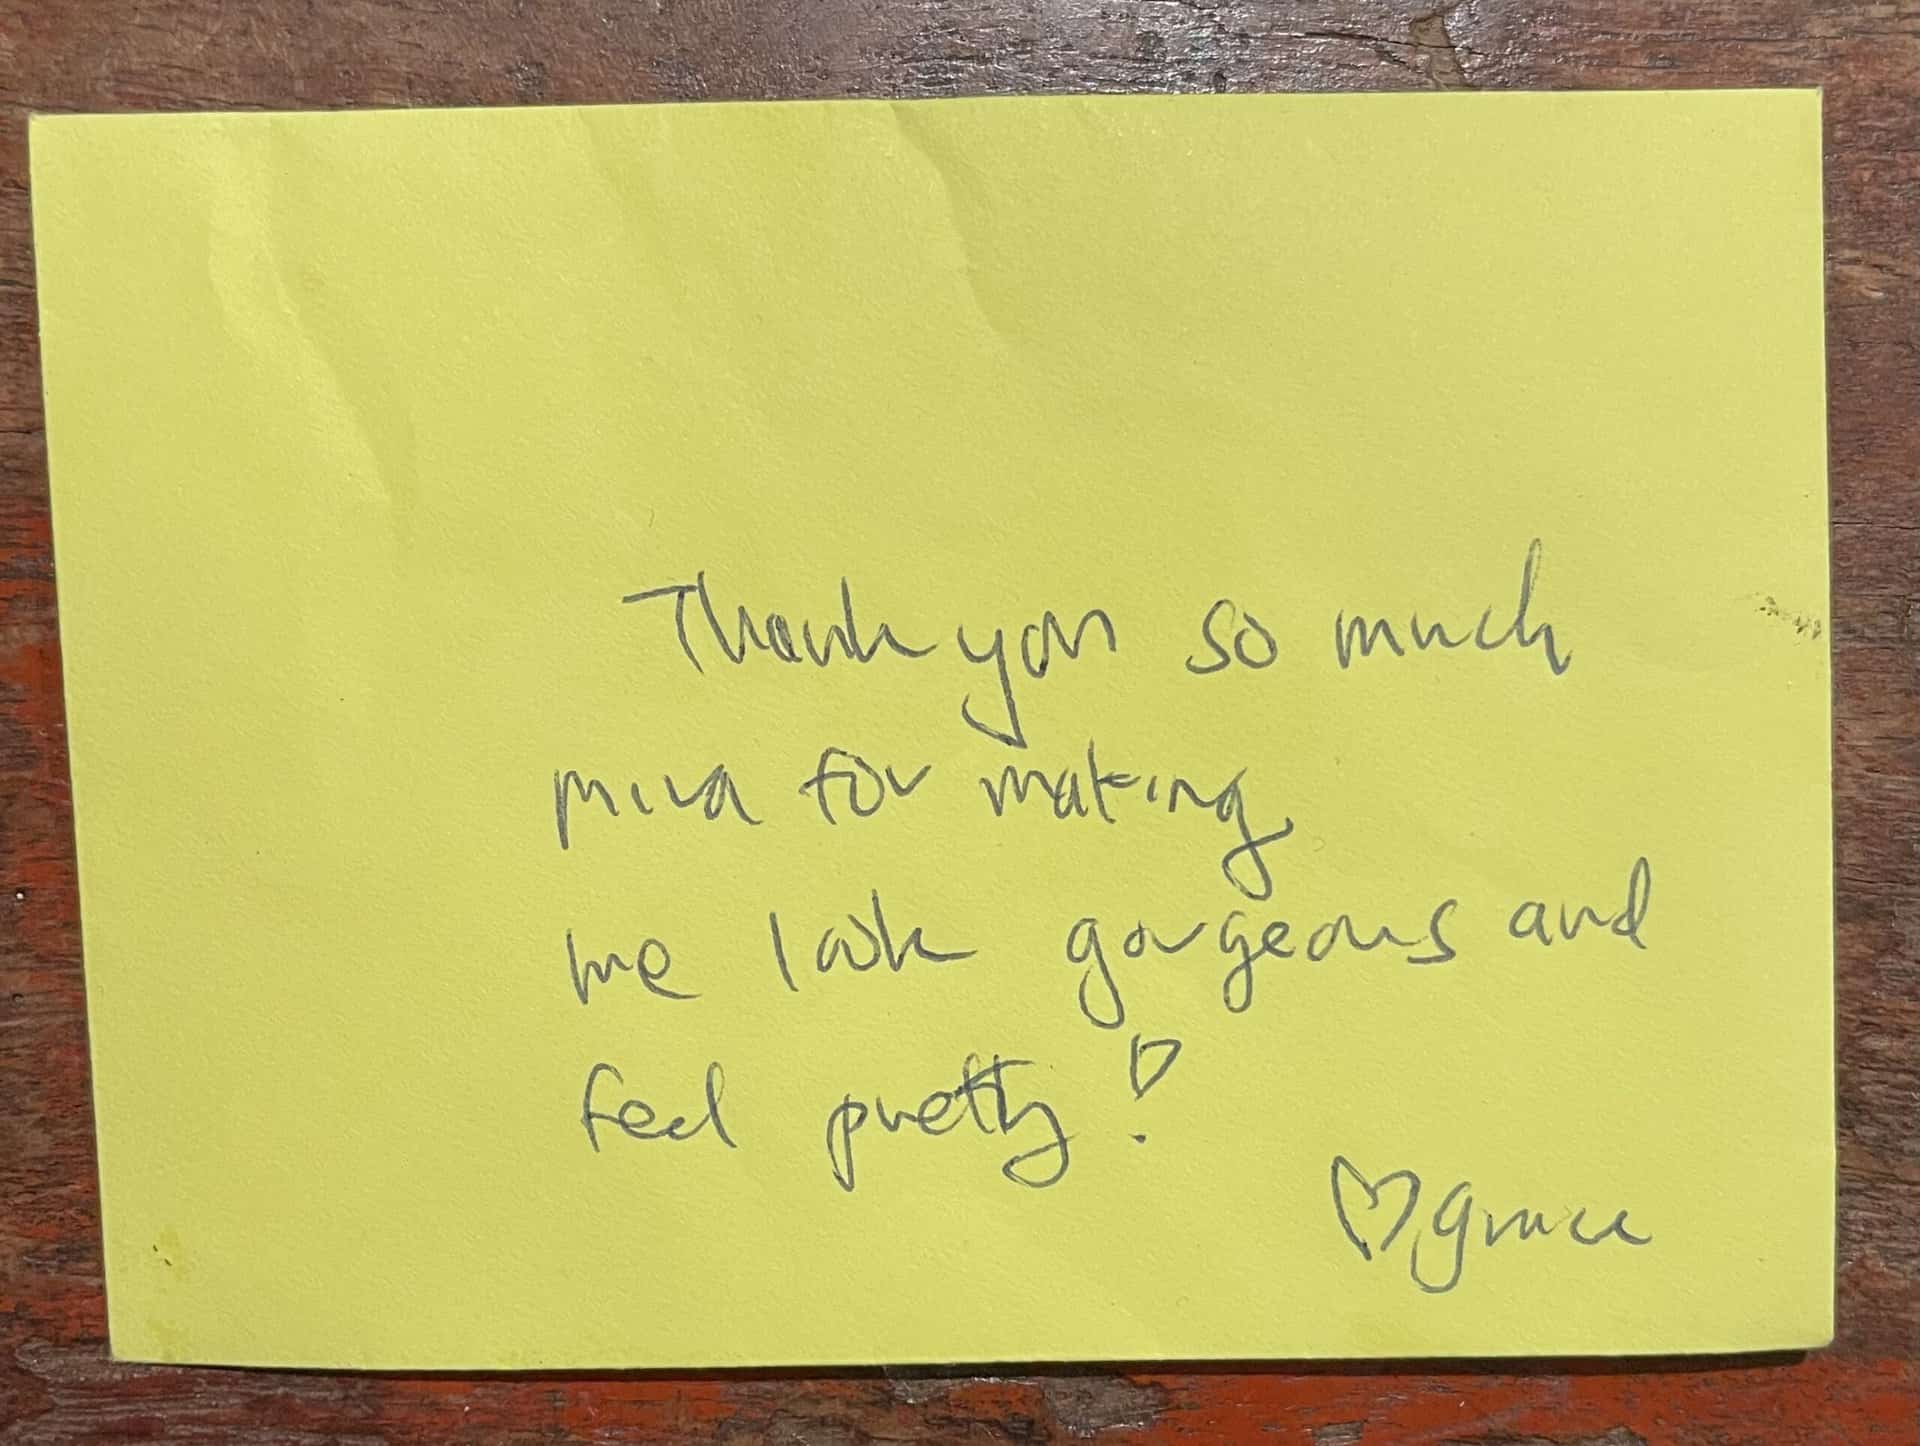 Thank you so much
mira for making
me look gorgeous and
feel pretty!
♡ grace